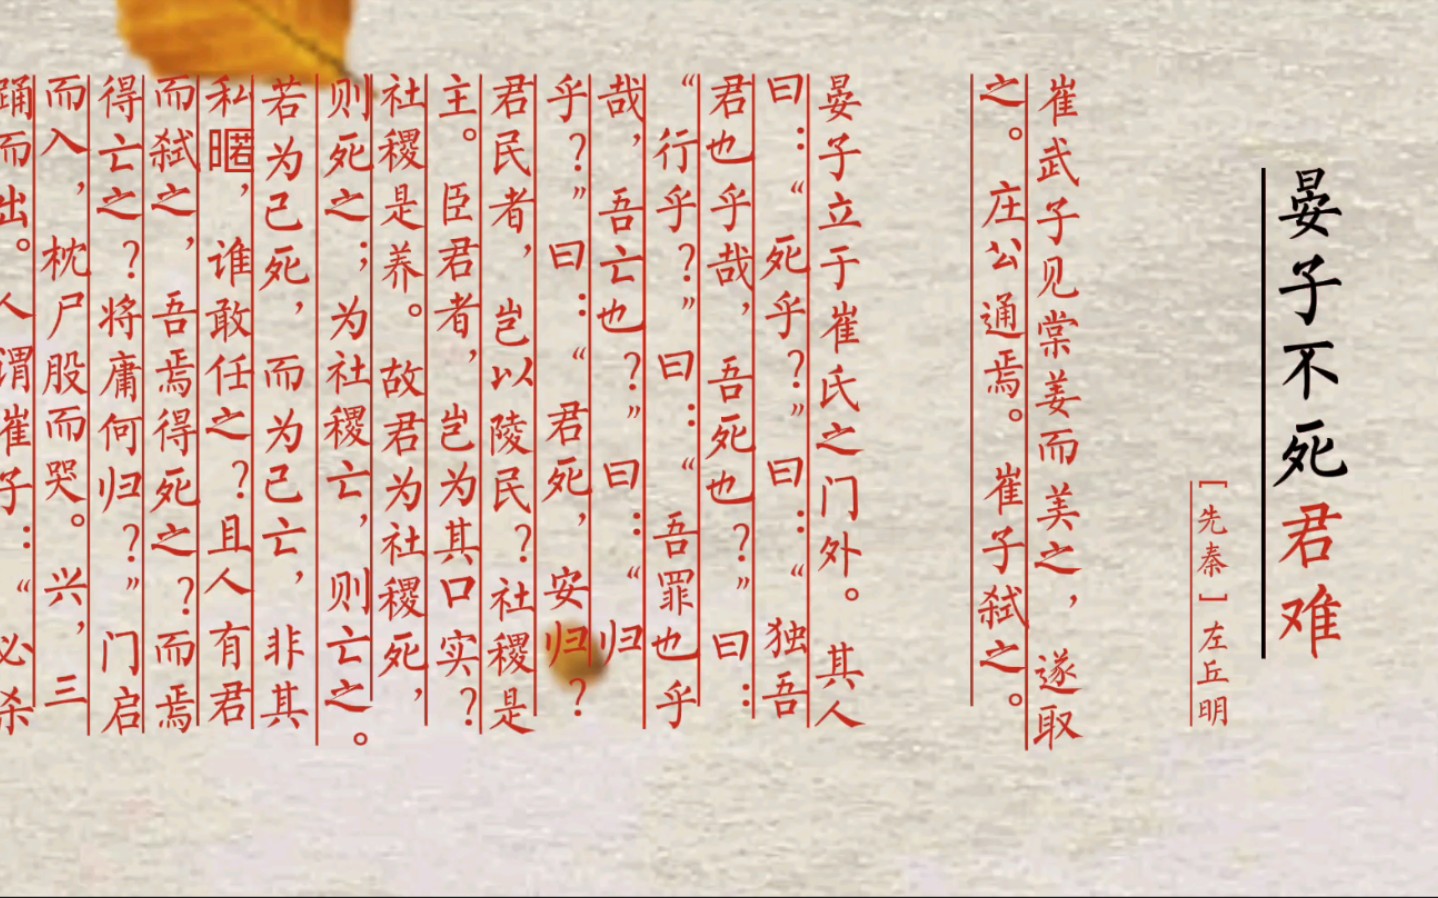 晏子不死君难
［先秦］左丘明
崔武子见棠姜而美之，遂取
之。庄公通焉。崔子弑之。
晏子立于崔氏之门外。其人
曰：“死乎？”曰：“独吾
君也乎哉，吾死也？”曰：
“行乎？”曰：“吾罪也乎
哉，吾亡也？”曰：“归
乎？”曰：“君死，安归？
君民者，岂以陵民？社稷是
主。臣君者，岂为其口实？
社稷是养。故君为社稷死，
则死之；为社稷亡，则亡之。
若为己死，而为己亡，非其
私暱，谁敢任之？且人有君
而弑之，吾焉得死之？而焉
得亡之？将庸何归？”门启
而入，枕尸股而哭。兴，三
踊而出。人谓崔子：“必杀